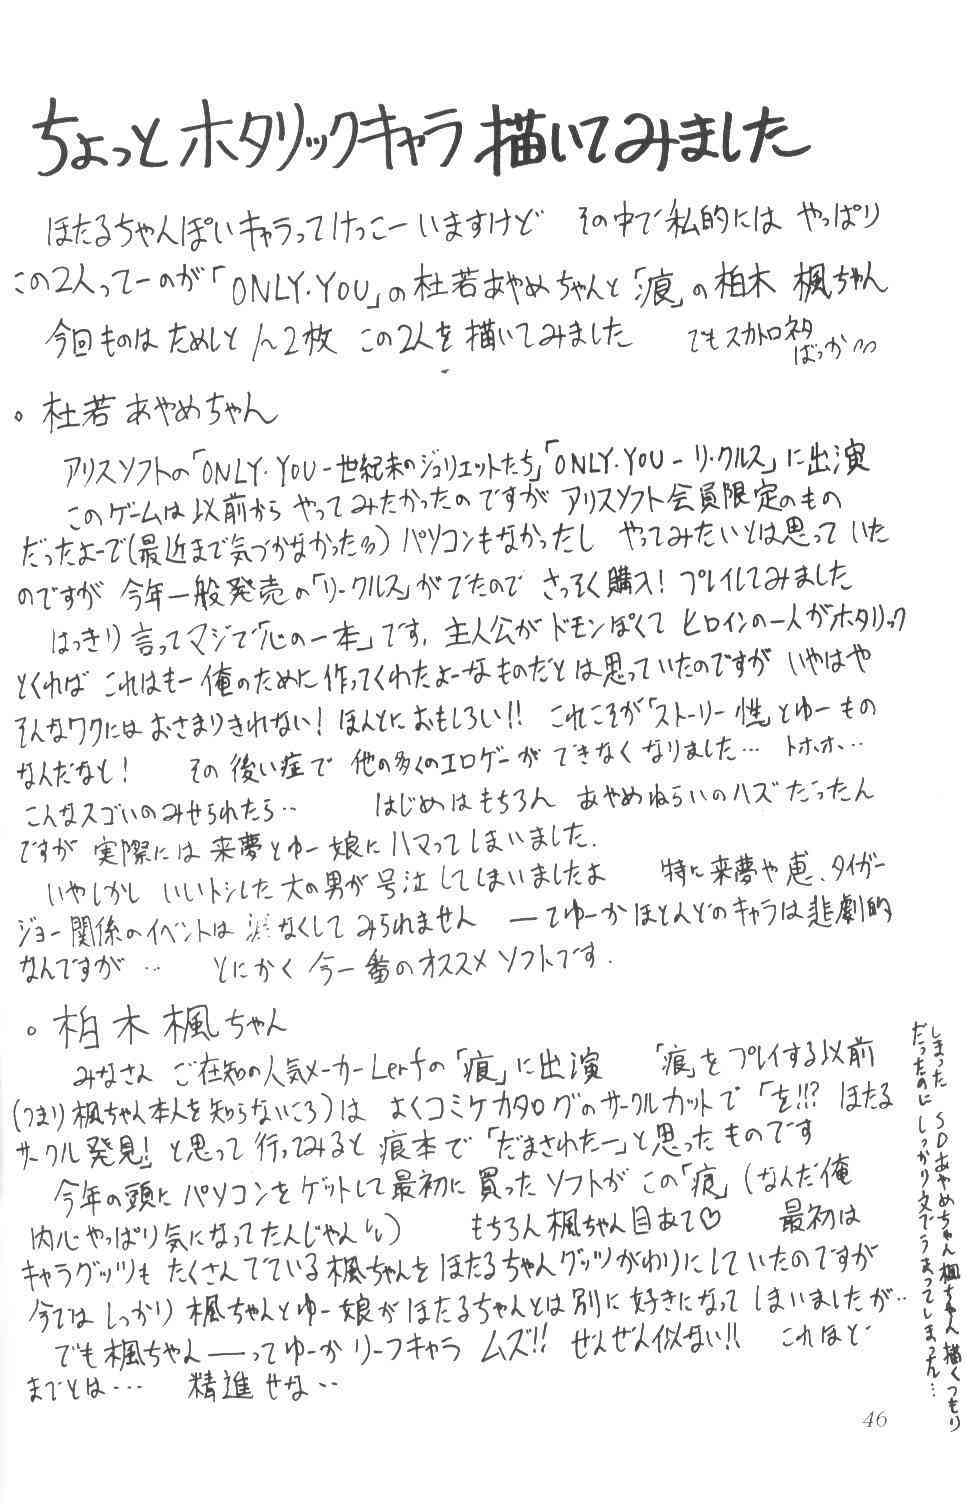 ちょっとホタリックキャラ描いてみました
ほたるちゃんぽいキャラってけっこーいますけど その中で私的には やっぱり
この2人ってーのが「ONLY.YOU」の杜若あやめちゃんと「痕」の柏木 楓ちゃん
今回ものはためしと1〜2枚 この2人を描いてみました でもスカトロネタ
ばっか
。杜若あやめちゃん
アリスソフトの「ONLY.YOU-世紀末のジュリエットたち」「ONLY.YOU-リ・クルス」に出演
このゲームは以前から やってみたかったのですが アリスソフト会員限定のもの
だったよーで(最近まで気づかなかった) パソコンもなかったし やってみたいとは思って いた
のですが 今年一般発売の「リ-クルス」がでたので さっそく購入! プレイしてみました
はっきり言ってマジで「心の一本」です. 主人公がドモンぽくて ヒロインの一人がホタリック
とくれば これはもー俺のために作ってくれたよーなものだとは思っていたのですが いやはや
そんなワクにはおさまりきれない! ほんとにおもしろい!! これこそが「ストーリー性」とゆーもの
なんだなと! その後い症で 他の多くのエロゲーができなくなりました… トホホ…
こんなスゴいのみせられたら‥ はじめはもちろん あやめねらいのハズだったん
ですが 実際には来夢とゆー娘にハマってしまいました.
いやしかし いいトシした大の男が号泣してしまいましたよ 特に来夢や恵、タイガー
ジョー関係のイベントは 涙なくしてみられません ーてゆーかほとんどのキャラは悲劇的
なんですが … とにかく今一番のオススメソフトです.
。柏木楓ちゃん
みなさん ご在知の人気メーカーLerfの「痕」に出演 「痕」をプレイする以前
(つまり楓ちゃん本人を知らないころ)は よくコミケカタログのサークルカットで「を!!? ほたる
サークル発見!」と思って行ってみると痕本で「だまされたー」と思ったものです
今年の頭にパソコンをゲットして最初に買ったソフトがこの「痕」(なんだ俺
内心やっぱり気になってたんじゃん) もちろん楓ちゃん目あて♡ 最初は
キャラグッツもたくさんでている楓ちゃんをほたるちゃんグッツがわりにしていたのですが
今ではしっかり楓ちゃんとゆー娘がほたるちゃんとは別に好きになってしまいましたが‥
でも楓ちゃんーってゆーかリーフキャラ ムズ!! ぜんぜん似ない!! これほど
までとは… 精進せな‥
しまった SDあやめちゃん楓ちゃん描くつもり
だったのにしっかり文でうまってしまった…
46